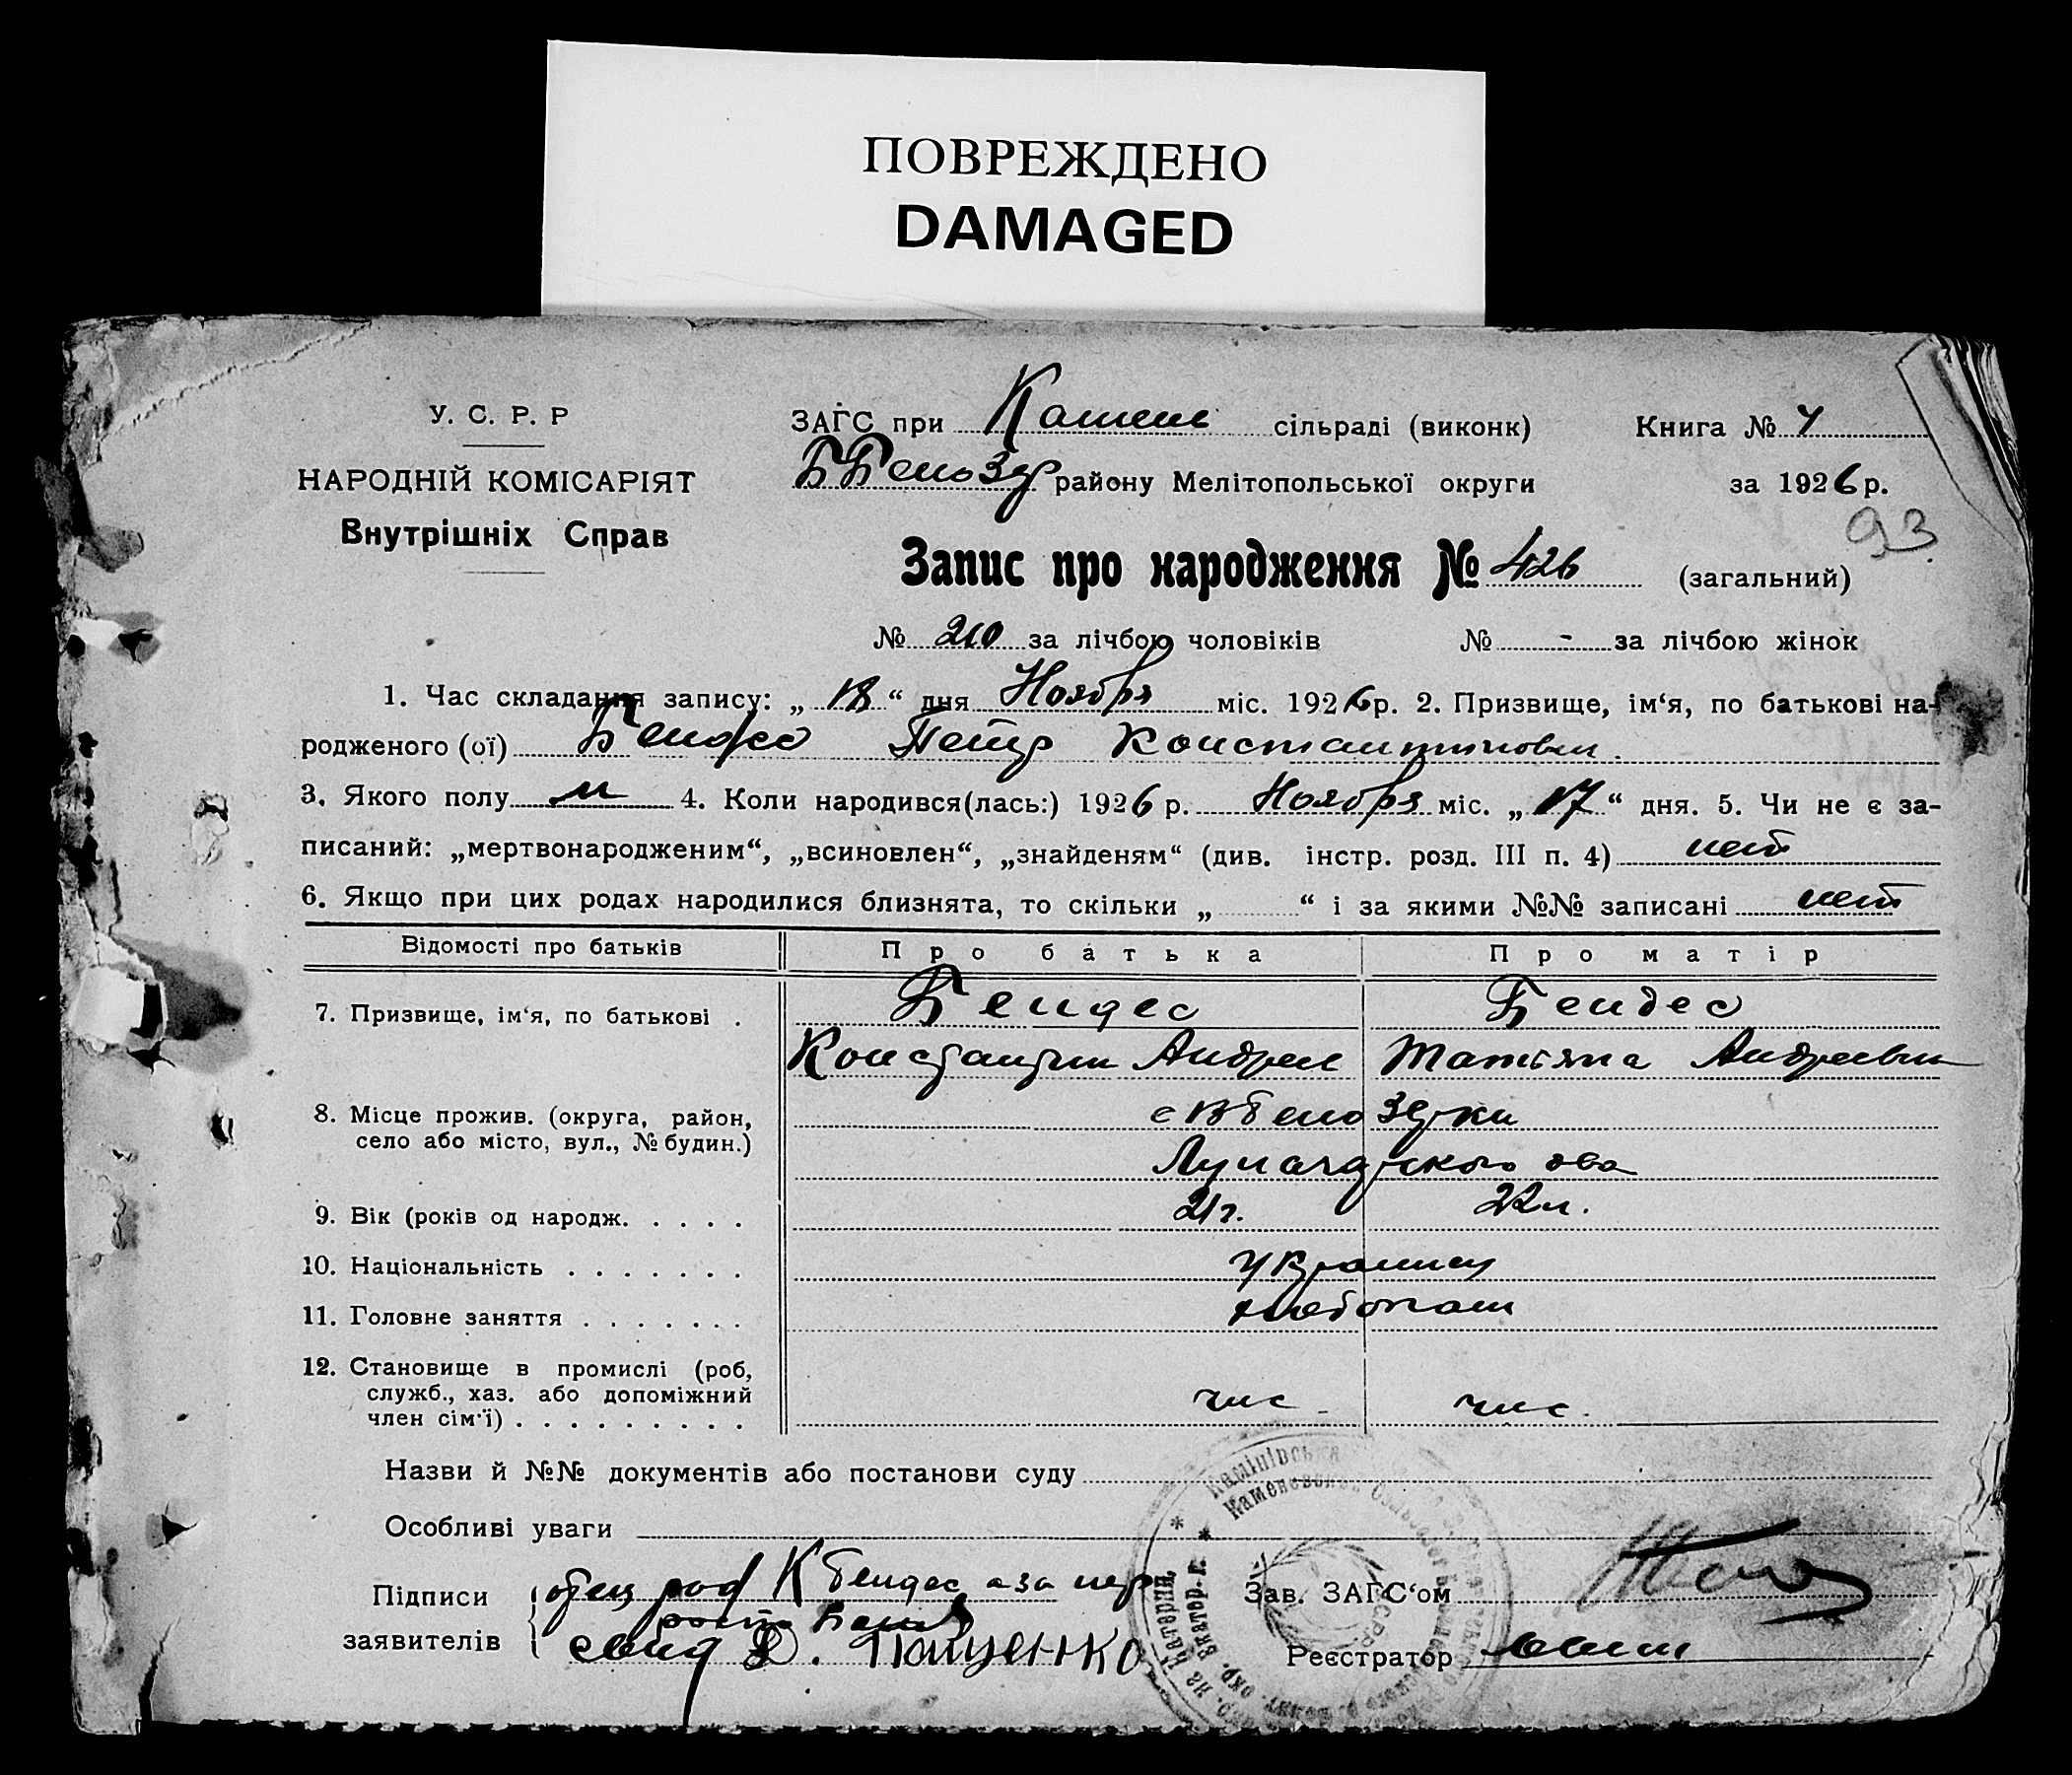 ПОВРЕЖДЕНО
DAMAGED
У. С. Р. Р
НАРОДНІЙ КОМІСАРІЯТ
Внутрішніх Справ
ЗАГС при Камен сільраді (виконк)
ББелозер району Мелітопольської округи
Книга №
за 1926 р.
93
Запис про народження № 426 (загальний)
№ 210 за лічбою чоловіків № - за лічбою жінок
1. Час складання запису: „ 18 “ дня Ноября міс. 1926 р. 2. Призвище, ім‘я, по батькові на-
родженого (ої) Бендес Петр Константинович.
3. Якого полу м 4. Коли народився(лась:) 1926 р. Ноября міс. „ 17 “ дня. 5. Чи не є за-
писаний: „мертвонародженим“, „всиновлен“, „знайденям“ (див. інстр. розд. III п. 4) нет
6. Якщо при цих родах народилися близнята, то скільки „ “ і за якими №№ записані нет
Відомості про батьків Про батька Про матір
7. Призвище, ім‘я, по батькові . Бендес Бендес
Константин Андрее Татьяна Андреевн
8. Місце прожив. (округа, район, с Вбелозерки
село або місто, вул., № будин.)
9. Вік (років од народж. . . . . 21г. 22л.
10. Національність . . . . . . . Украинцы
11. Головне заняття . . . . . . . хлебопаш
12. Становище в промислі (роб,
служб., хаз. або допоміжний
член сім‘ї) . . . . . . . . . чис чис.
Назви й №№ документів або постанови суду
Особливі уваги
Підписи
заявителів
отец К Бендес а за
Д. Пащенко
Зав. ЗАГС‘ом
Реєстратор
Камінівська
Каменевской